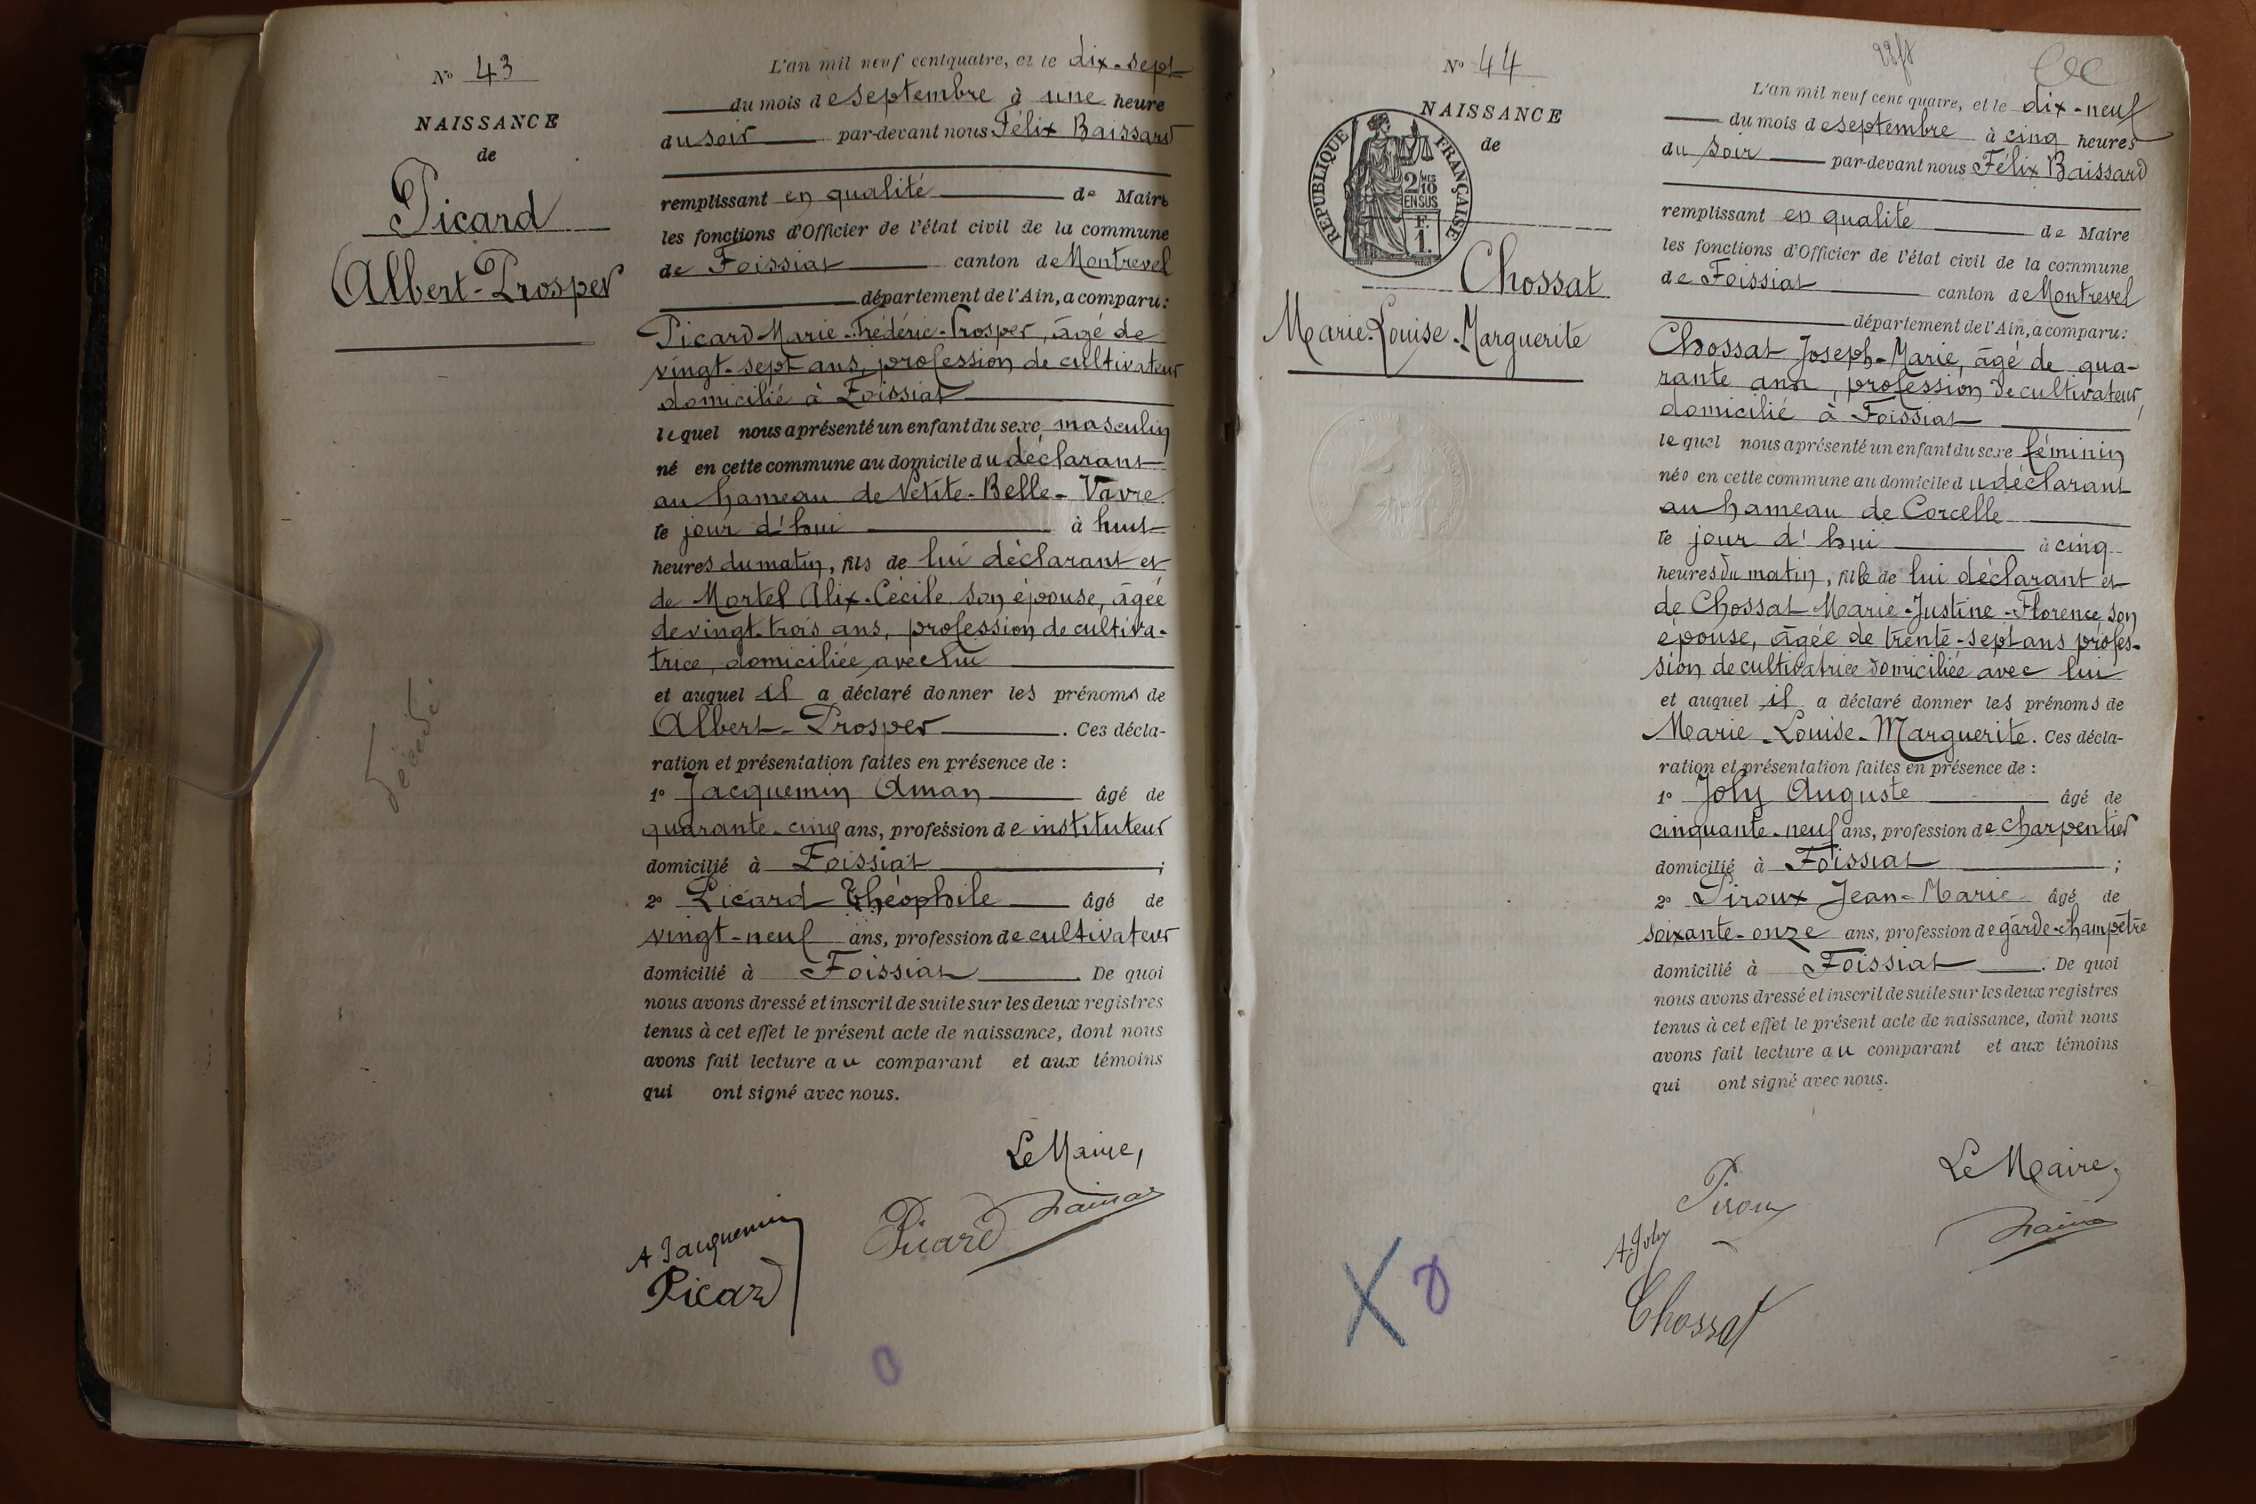 N° 43
NAISSANCE
de
Picard
Albert-Prosper
Décédé
L'an mil neuf cent quatre, et le dix-sept
du mois de septembre à une heure
du soir par-devant nous Félix Baissard
remplissant en qualité de Maire
les fonctions d'Officier de l'état civil de la commune
de Foissiat canton de Montrevel
département de l'Ain, a comparu:
Picard Marie-Frédéric-Prosper, âgé de
vingt-sept ans, profession de cultivateur
domicilié à Foissiat
lequel nous a présenté un enfant du sexe masculin
né en cette commune au domicile du déclarant
au hameau de Petite-Belle-Vavre
le jour d'hui à huit
heures du matin, fils de lui déclarant et
de Mortel Alix-Cécile son épouse, âgée
de vingt-trois ans, profession de cultiva-
trice, domiciliée avec lui
et auquel il a déclaré donner les prénoms de
Albert-Prosper. Ces décla-
ration et présentation faites en présence de :
1° Jacquemin Aman âgé de
quarante-cinq ans, profession de instituteur
domicilié à Foissiat ;
2° Picard Théophile âgé de
vingt-neuf ans, profession de cultivateur
domicilié à Foissiat. De quoi
nous avons dressé et inscrit de suite sur les deux registres
tenus à cet effet le présent acte de naissance, dont nous
avons fait lecture au comparant et aux témoins
qui ont signé avec nous.
Le Maire,
A Jacquemin
Picard
Picard
N° 44
NAISSANCE
de
REPUBLIQUE FRANÇAISE
2/10 MES
EN SUS
F.
1.
Chossat
Marie-Louise-Marguerite
L'an mil neuf cent quatre, et le dix-neuf
du mois de septembre à cinq heures
du soir par-devant nous Félix Baissard
remplissant en qualité de Maire
les fonctions d'Officier de l'état civil de la commune
de Foissiat canton de Montrevel
département de l'Ain, a comparu:
Chossat Joseph-Marie, âgé de qua-
rante ans, profession de cultivateur,
domicilié à Foissiat
lequel nous a présenté un enfant du sexe féminin
née en cette commune au domicile du déclarant
au hameau de Corcelle
le jour d'hui à cinq
heures du matin, fille de lui déclarant et
de Chossat Marie-Justine-Florence son
épouse, âgée de trente-sept ans profes-
sion de cultivatrice domiciliée avec lui
et auquel il a déclaré donner les prénoms de
Marie-Louise-Marguerite. Ces décla-
ration et présentation faites en présence de :
1° Joly Auguste âgé de
cinquante-neuf ans, profession de charpentier
domicilié à Foissiat ;
2° Piroux Jean-Marie âgé de
soixante-onze ans, profession de garde-champêtre
domicilié à Foissiat. De quoi
nous avons dressé et inscrit de suite sur les deux registres
tenus à cet effet le présent acte de naissance, dont nous
avons fait lecture au comparant et aux témoins
qui ont signé avec nous.
Le Maire,
Piroux
A. Joly
Chossat